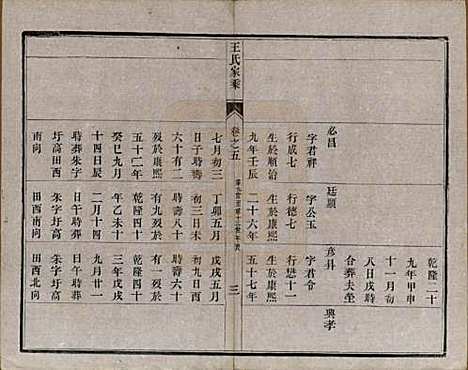 乾隆二十
九年甲申
十一月初
八日戌時
合葬夫坐
興孝
必昌
字君祥
行成七
生於順治
九年壬辰
七月初三
日子時壽
六十有二
歿於康熙
五十二年
癸巳九月
十四日辰
時葬朱字
圩高田西
南向
廷顯
字公玉
行德七
生於康熙
二十六年
丁卯五月
初三日未
時壽四十
有九歿於
乾隆四十
年乙未十
二月十四
日午時葬
朱字圩高
田西南向
彥科
字君令
行懋十一
生於康熙
五十七年
戊戌五月
初九日酉
時壽六十
有一歿於
乾隆四十
三年戊戌
九月廿一
日午時葬
朱字圩高
田西北向
王氏家乘
卷之五
三